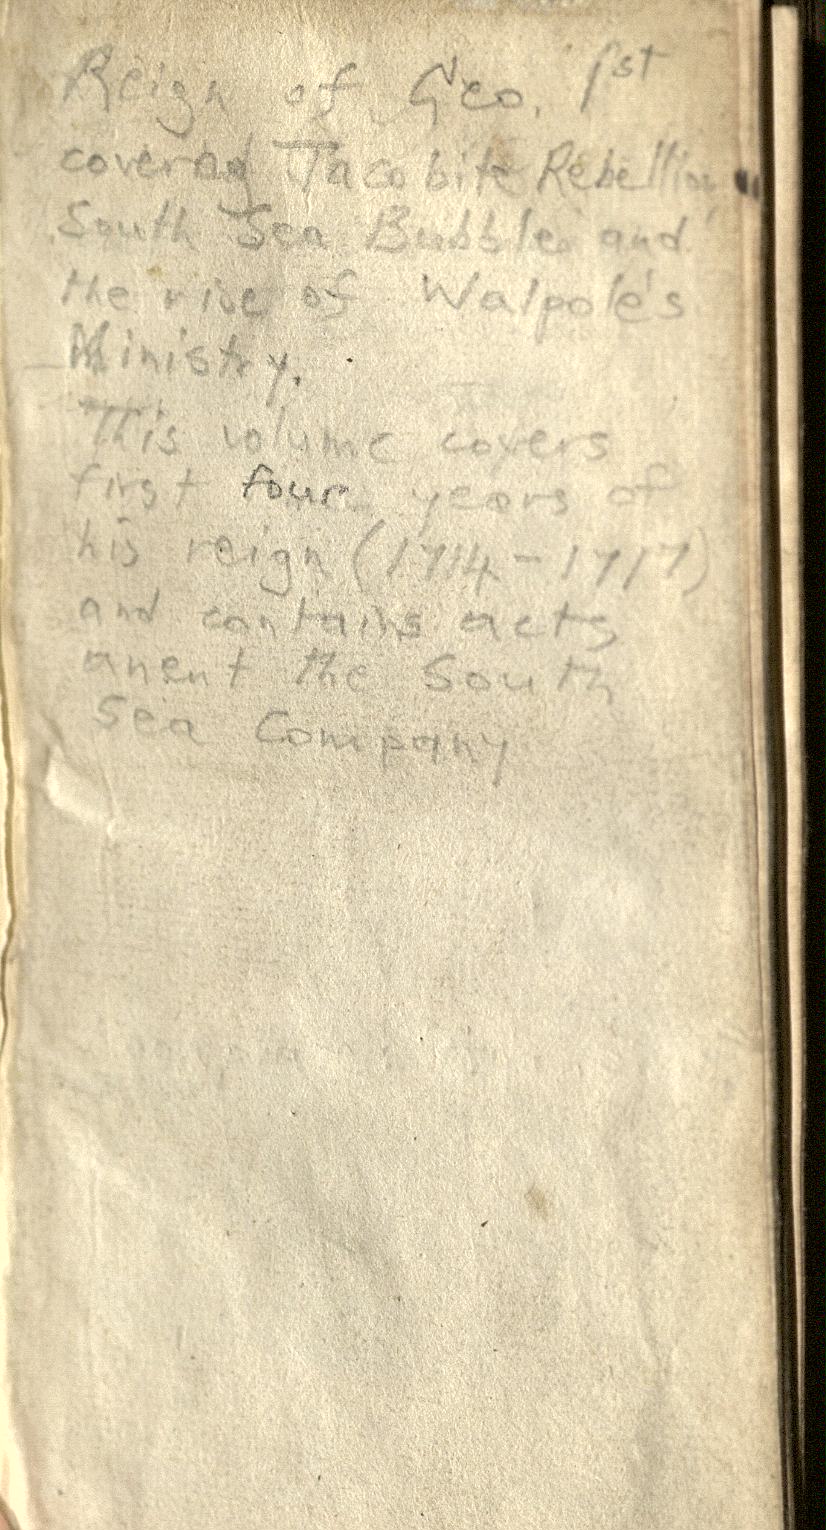 Reign of Geo. 1st
covered Jacobite Rebellion,
South Sea Bubble and
the rise of Walpole's
Ministry.
This volume covers
first four years of
his reign (1714-1717)
and contains acts
anent the South
Sea Company